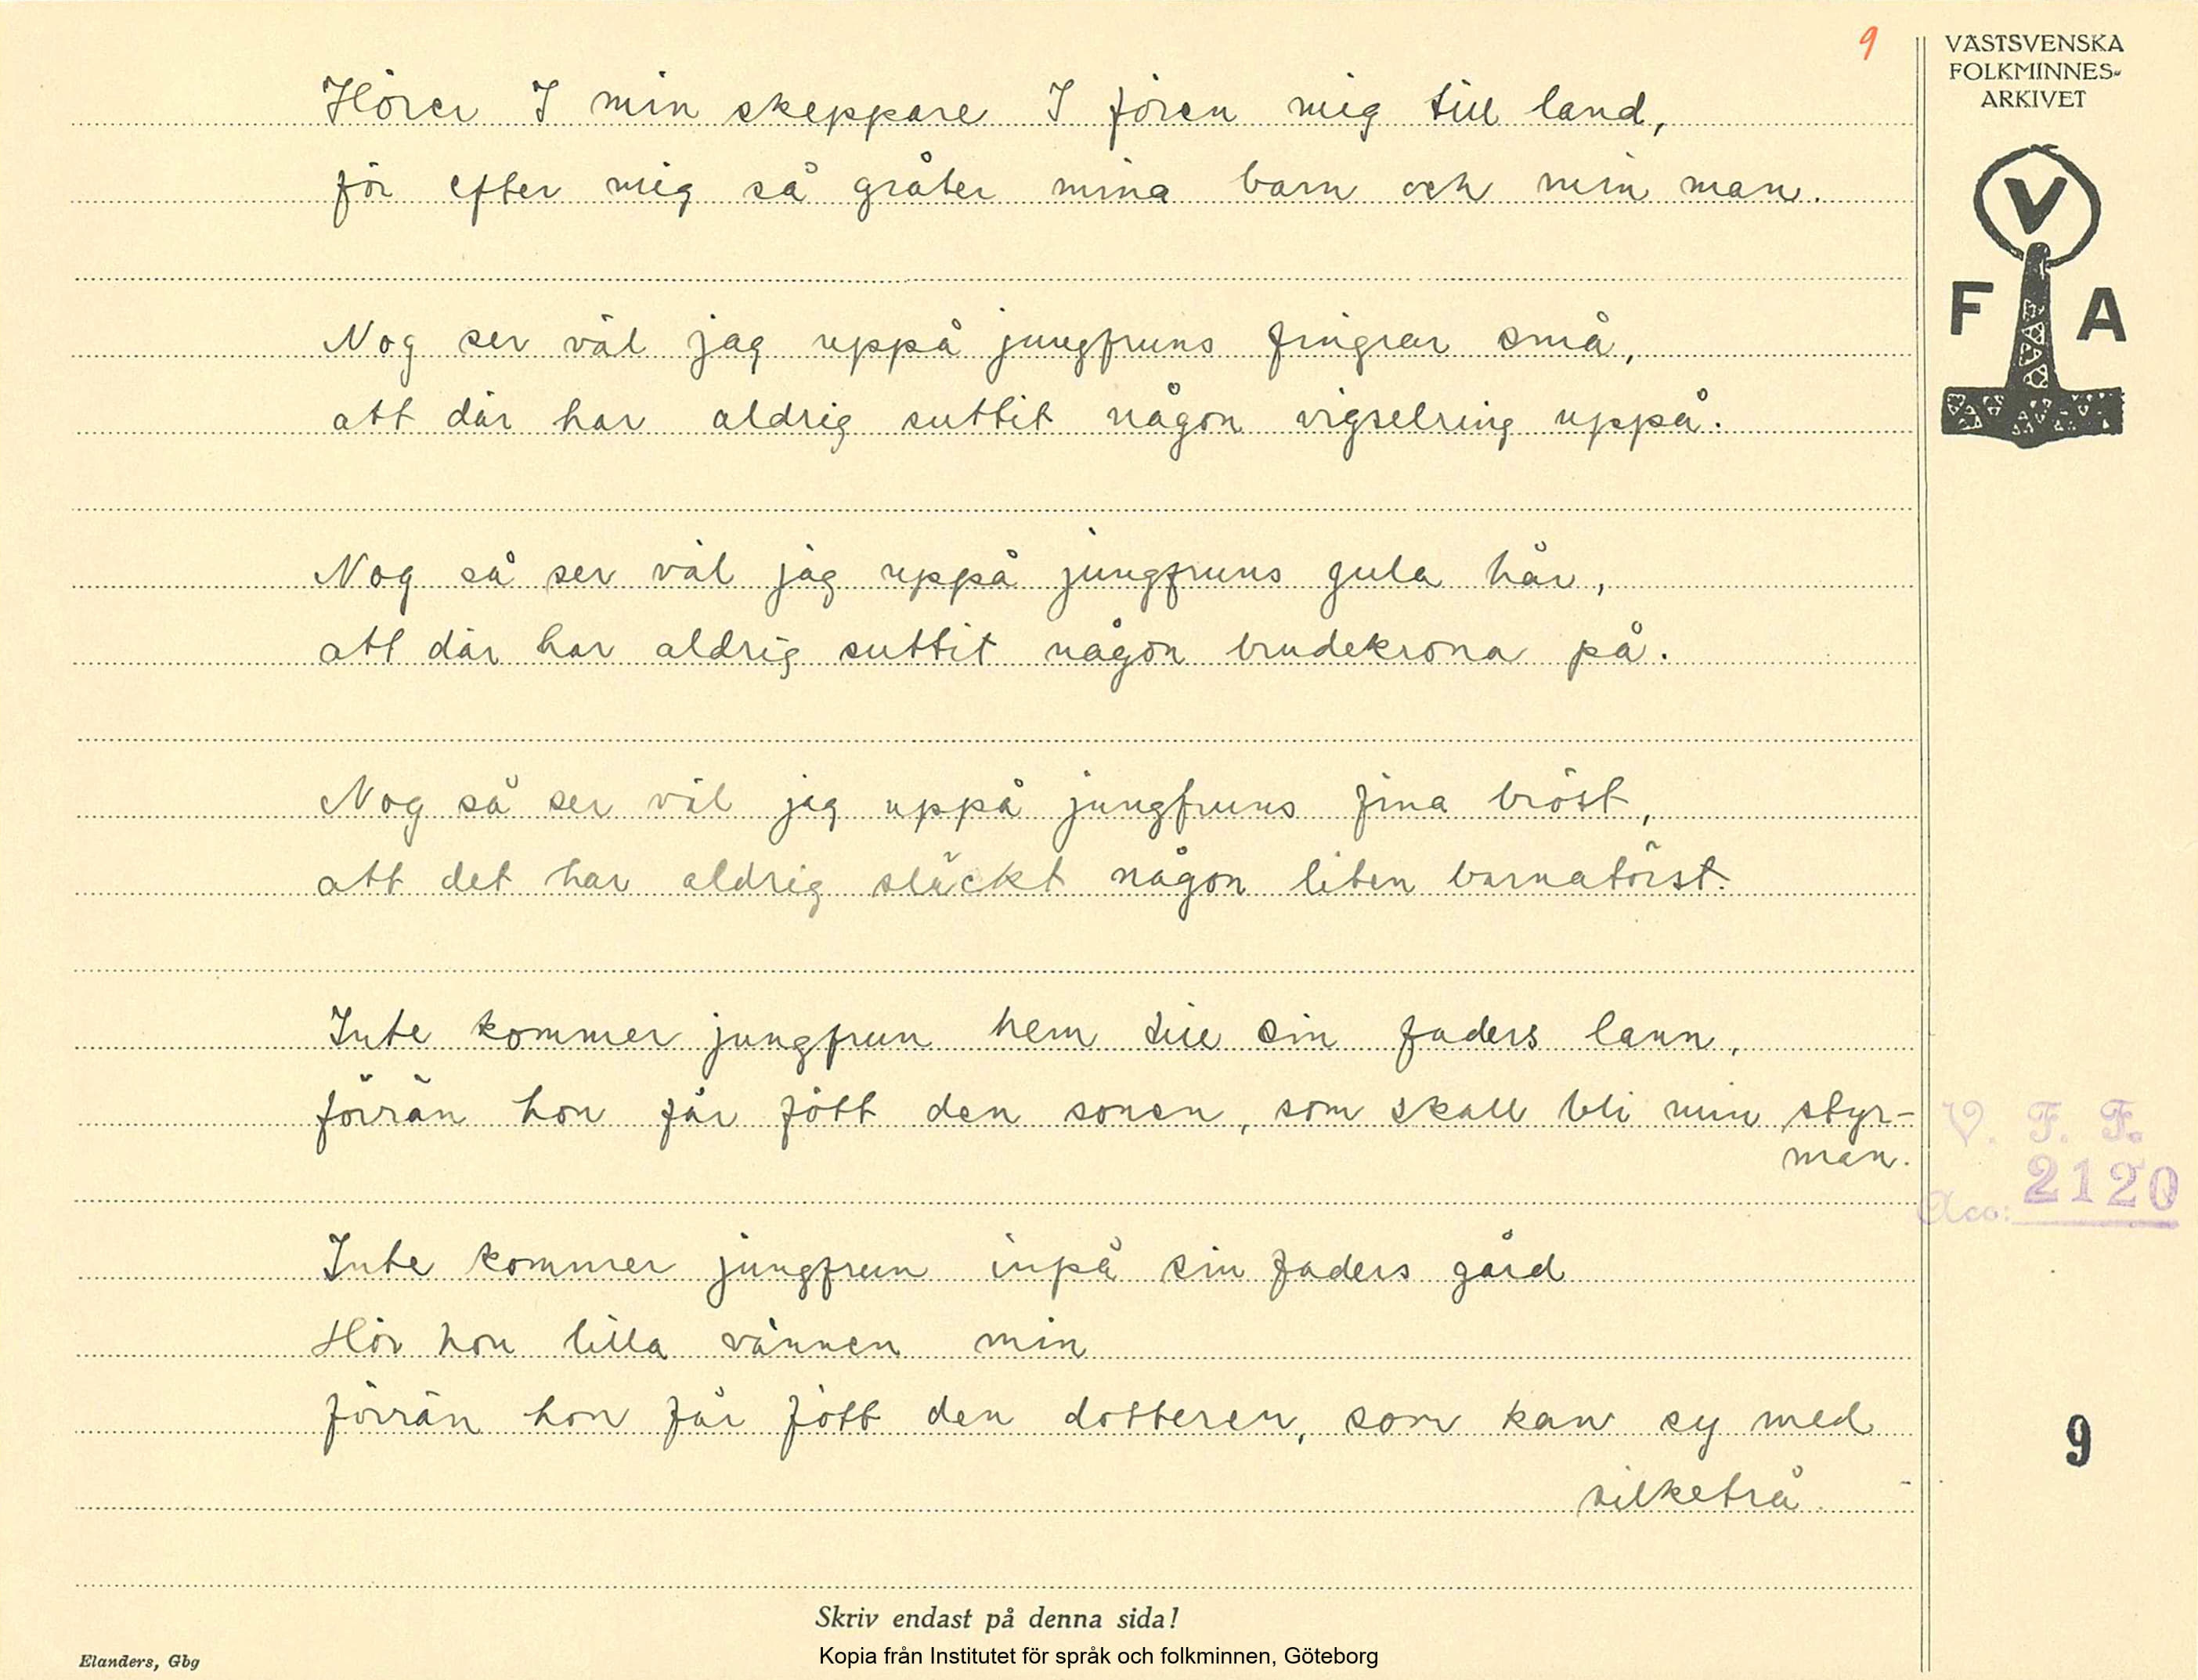 9
VÄSTSVENSKA
FOLKMINNES-
ARKIVET
V
F A
Hörer I min skeppare I fören mig till land,
för efter mig så gråter mina barn och min man.
Nog ser väl jag uppå jungfruns fingrar små,
att där har aldrig suttit någon vigselring uppå.
Nog så ser väl jag uppå jungfruns gula hår,
att där har aldrig suttit någon brudekrona på.
Nog så ser väl jag uppå jungfruns fina bröst,
att det har aldrig släckt någon liten barnatörst.
Inte kommer jungfrun hem till sin faders lann,
förrän hon får fött den sonen, som skall bli min styr-
man.
Inte kommer jungfrun inpå sin faders gård
Hör hon lilla vännen min
förrän hon får fött den dotteren, som kan sy med
silketrå.
V. F. F.
Acc: 2120
9
Skriv endast på denna sida!
Kopia från Institutet för språk och folkminnen, Göteborg
Elanders, Gbg